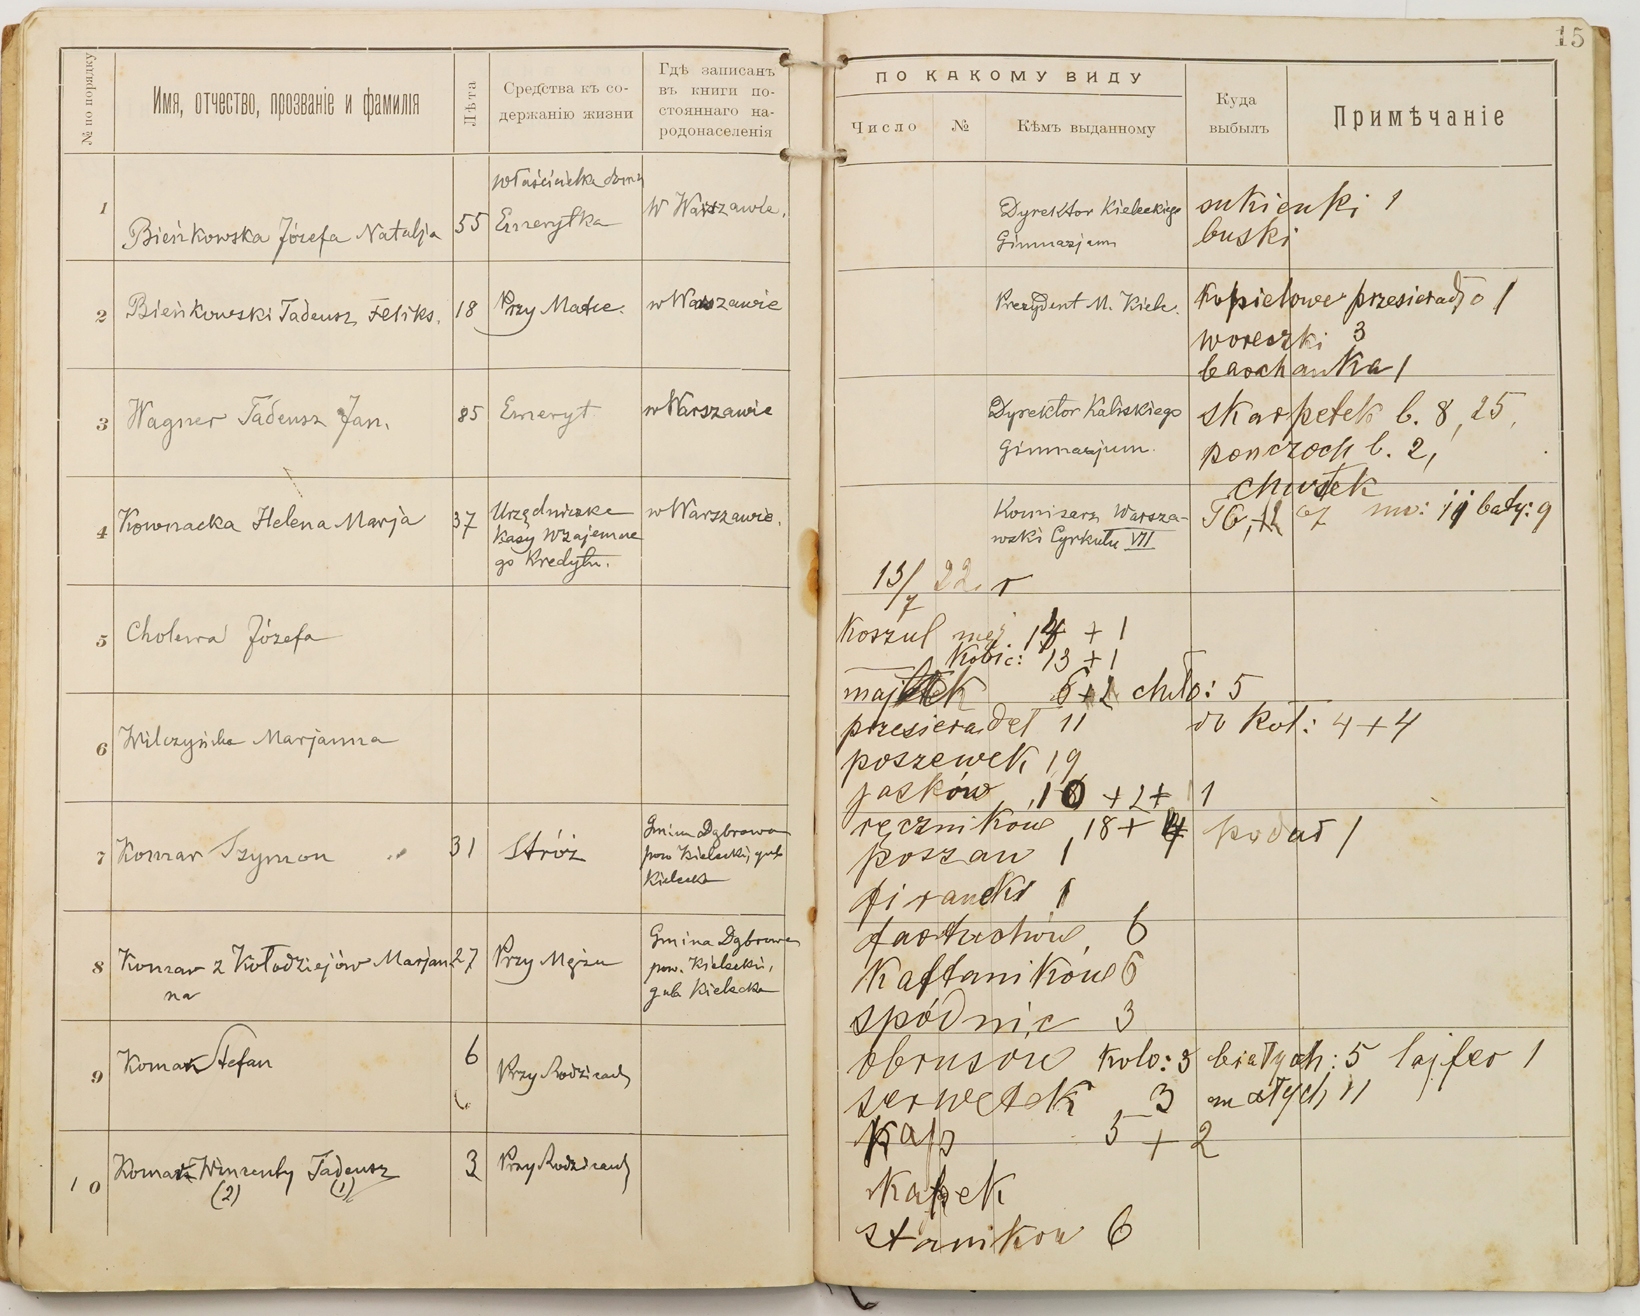 15
№ по порядку
Имя, отчество, прозваніе и фамилія
Лѣта
Средства къ со-
держанію жизни
Гдѣ записанъ
въ книги по-
стояннаго на-
родонаселенія
ПО КАКОМУ ВИДУ
Число
№
Кѣмъ выданному
Куда
выбылъ
Примѣчаніе
1
Bieńkowska Józefa Natalja
55
właścicielka domu
Emerytka
w Warszawie.
Dyrektor Kieleckiego
Gimnazjum
2
Bieńkowski Tadeusz Feliks.
18
Przy Matce.
w Warszawie
Prezydent M. Kielc.
3
Wagner Tadeusz Jan.
85
Emeryt
w Warszawie
Dyrektor Kaliskiego
Gimnazjum.
4
Kownacka Helena Marja
37
Urzędniczka
Kasy Wzajemne
go Kredytu.
w Warszawie.
Komisarz Warsza-
wski Cyrkułu VII
5
Cholewa Józefa
6
Wilczyńska Marjanna
7
Komar Szymon
31
Stróż
Gmina Dąbrowa
pow Kielecki, gub
Kielecka
8
Komar z Kołodziejów Marjan
na
27
Przy Mężu
Gmina Dąbrowa
pow. Kielecki,
gub Kielecka
9
Komar Stefan
6
Przy Rodzicach
10
Komar Wincenty Tadeusz
(2) (1)
3
Przy Rodzicach
sukienki 1
buski
Kąpielowe przesieradło 1
woreczki 3
barchanka 1
skarpetek b. 8, 25,
ponczoch b. 2,
chustek
mę: biały: 9
13/7 22. r
Koszul męż. 14 + 1
Kobic: 13 + 1
majtek 6+1 chło: 5
przesieradeł 11 do koł: 4+4
poszewek 19
jasków 10 +2+ 1
ręczników 18+4
poszaw 1 podał 1
firanki 1
fartuchów 6
Kaftaników 6
spódnic 3
obrusów Kolo: 3 białych: 5 lajfer 1
serwetek 3 małych 11
Kap 5 + 2
Kapek
stanikow 6